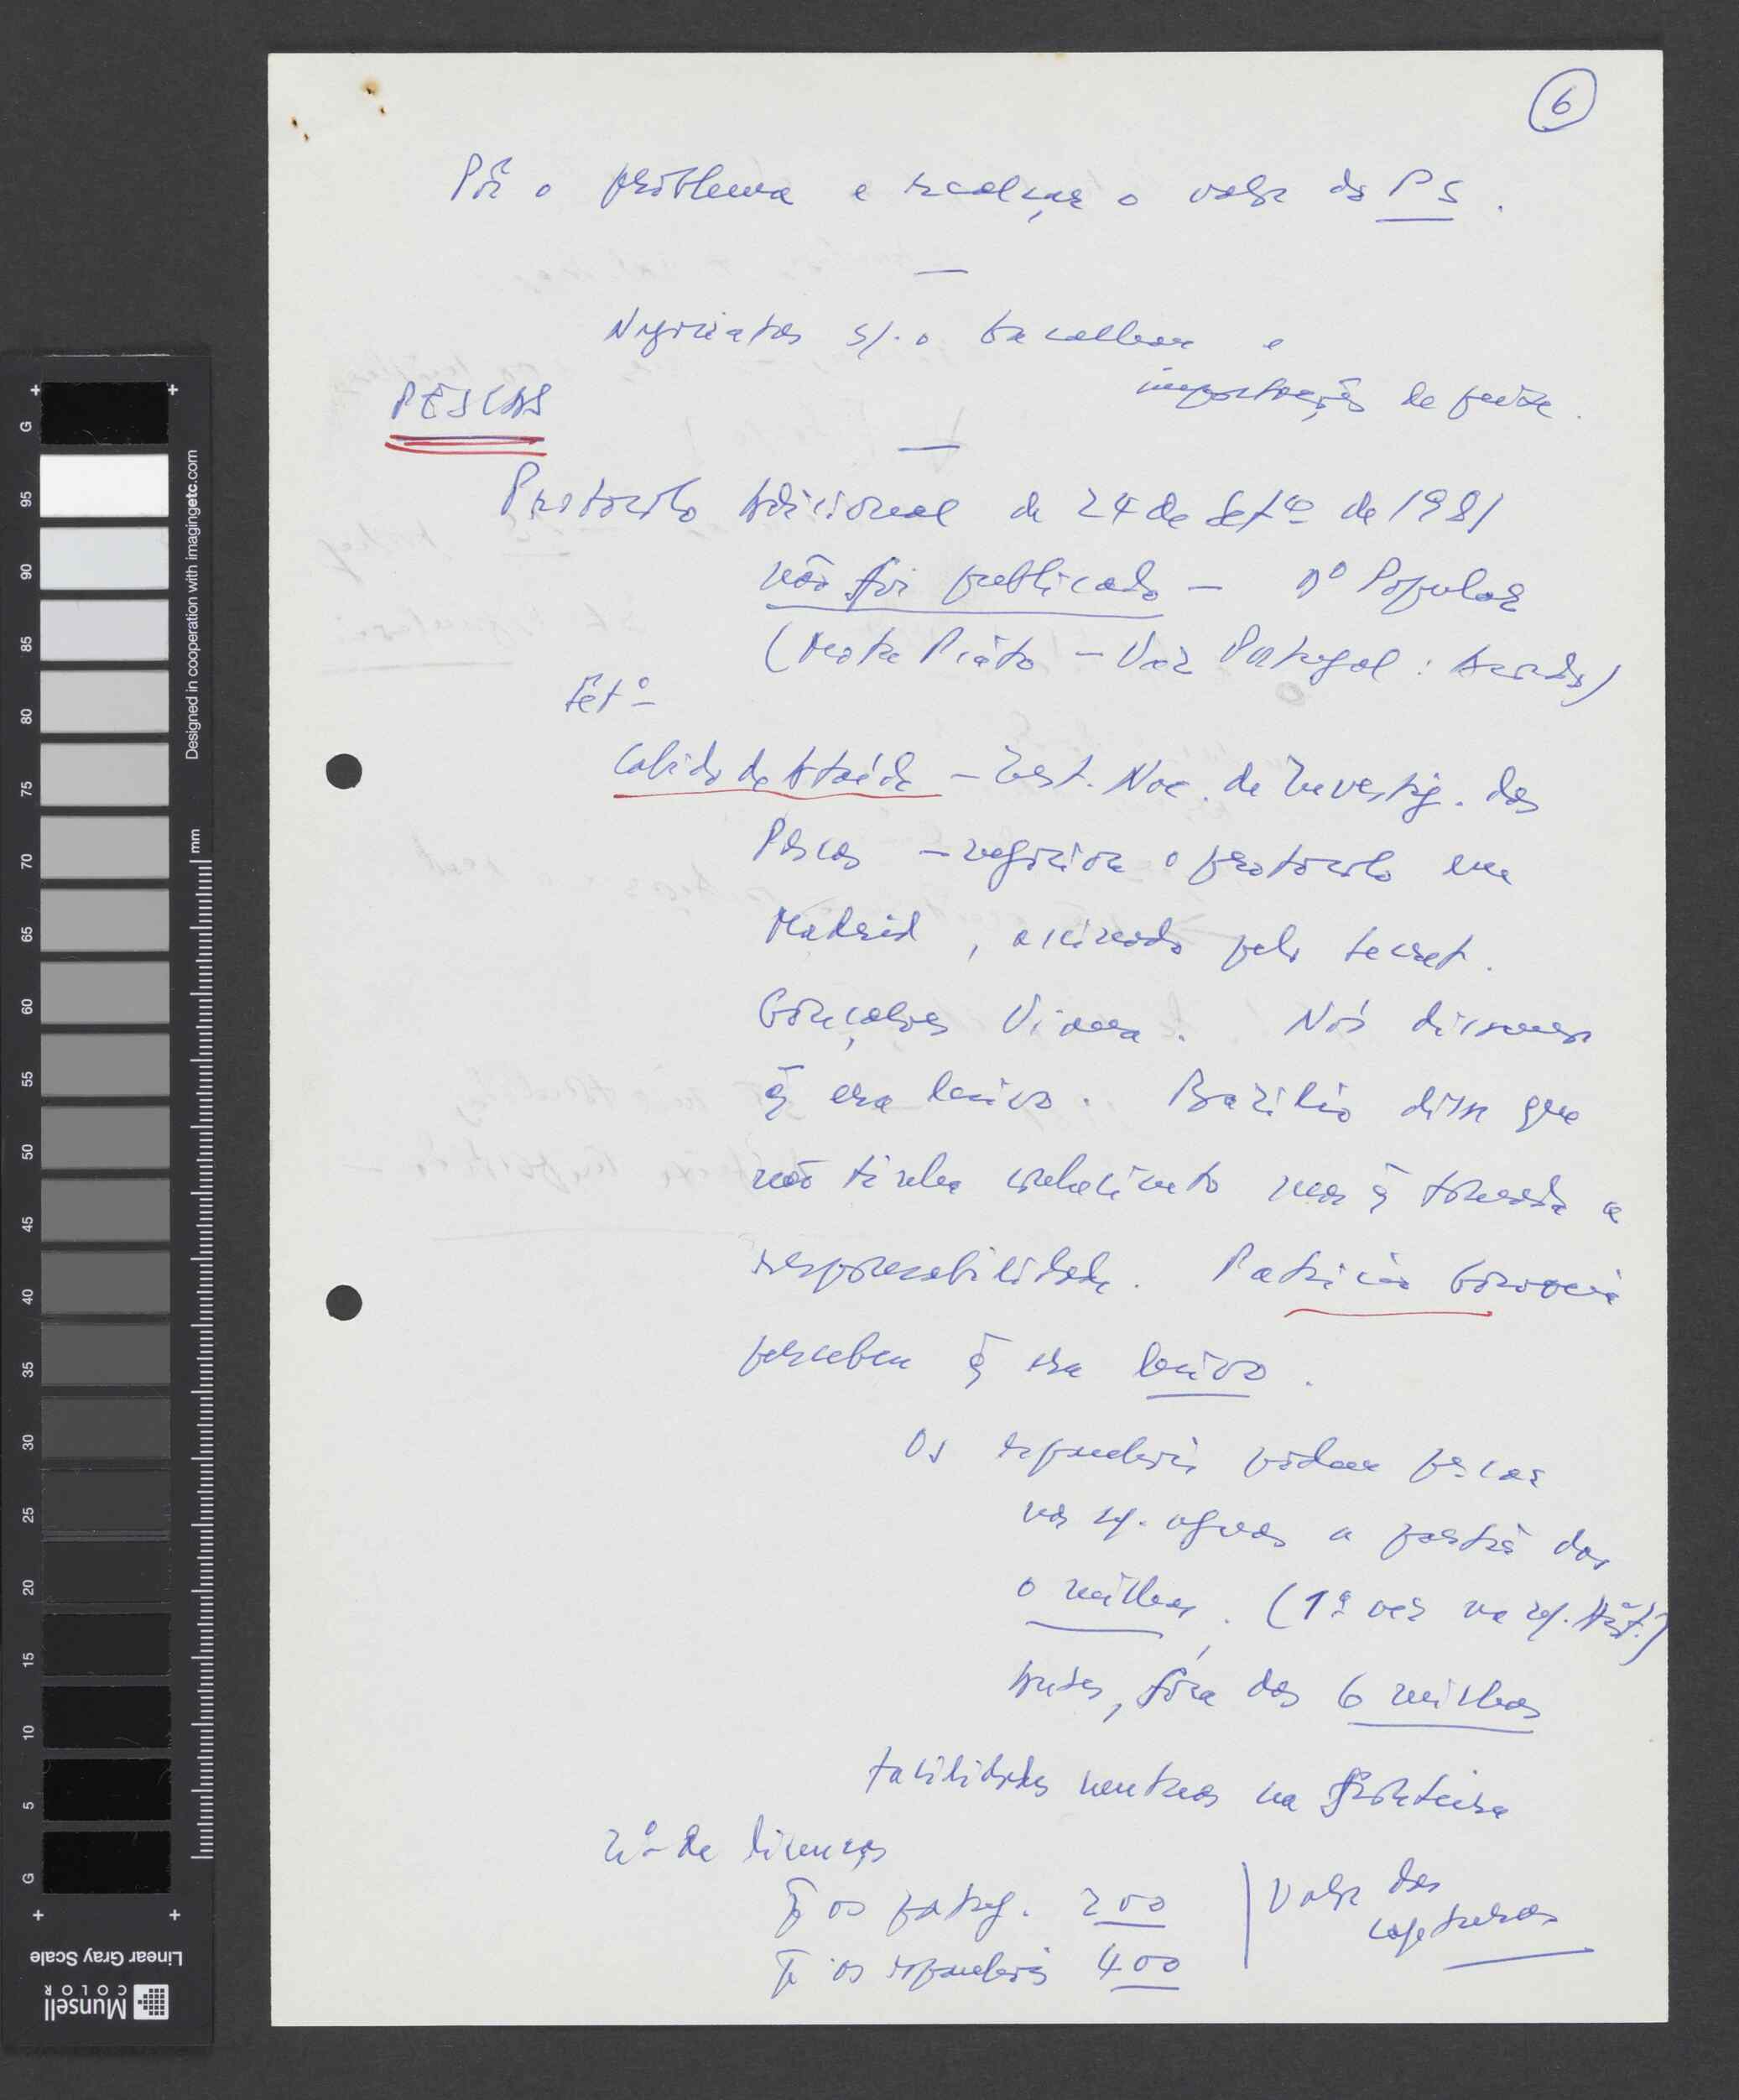 6
Pôr o problema e realçar o valor do PS.
Negociatas s/. o bacalhau e
importação de peixe.
PESCAS
Protocolo Adicional de 24 de Setº de 1981
não foi publicado — Dº Popular
(Mota Pinto — Vaz Portugal : Acordo)
Setº
Cabido de Ataíde — Inst. Nac. de Investig. das
Pescas — negociou o protocolo em
Madrid, assinado pelo Secret.
Gonçalves Viana. Nós dissemos
q̃ era lesivo. Basílio disse que
não tinha conhecimento mas q̃ tomada a
responsabilidade. Patrício Gouveia
percebeu q̃ era lesivo.
Os espanhóis podem pescar
nas n/. aguas a partir das
0 milhas. (1ª vez na n/. Hist.)
Antes, fóra das 6 milhas
Facilidades mútuas na fronteira
nº de licenças
pª os portug. 200
pª os espanhóis 400
Valor das
capturas
G
95
90
85
80
75
70
65
60
55
50
45
40
35
30
25
20
15
10
5
G
mm
Designed in cooperation with imagingetc.com
Linear Gray Scale
Munsell
COLOR